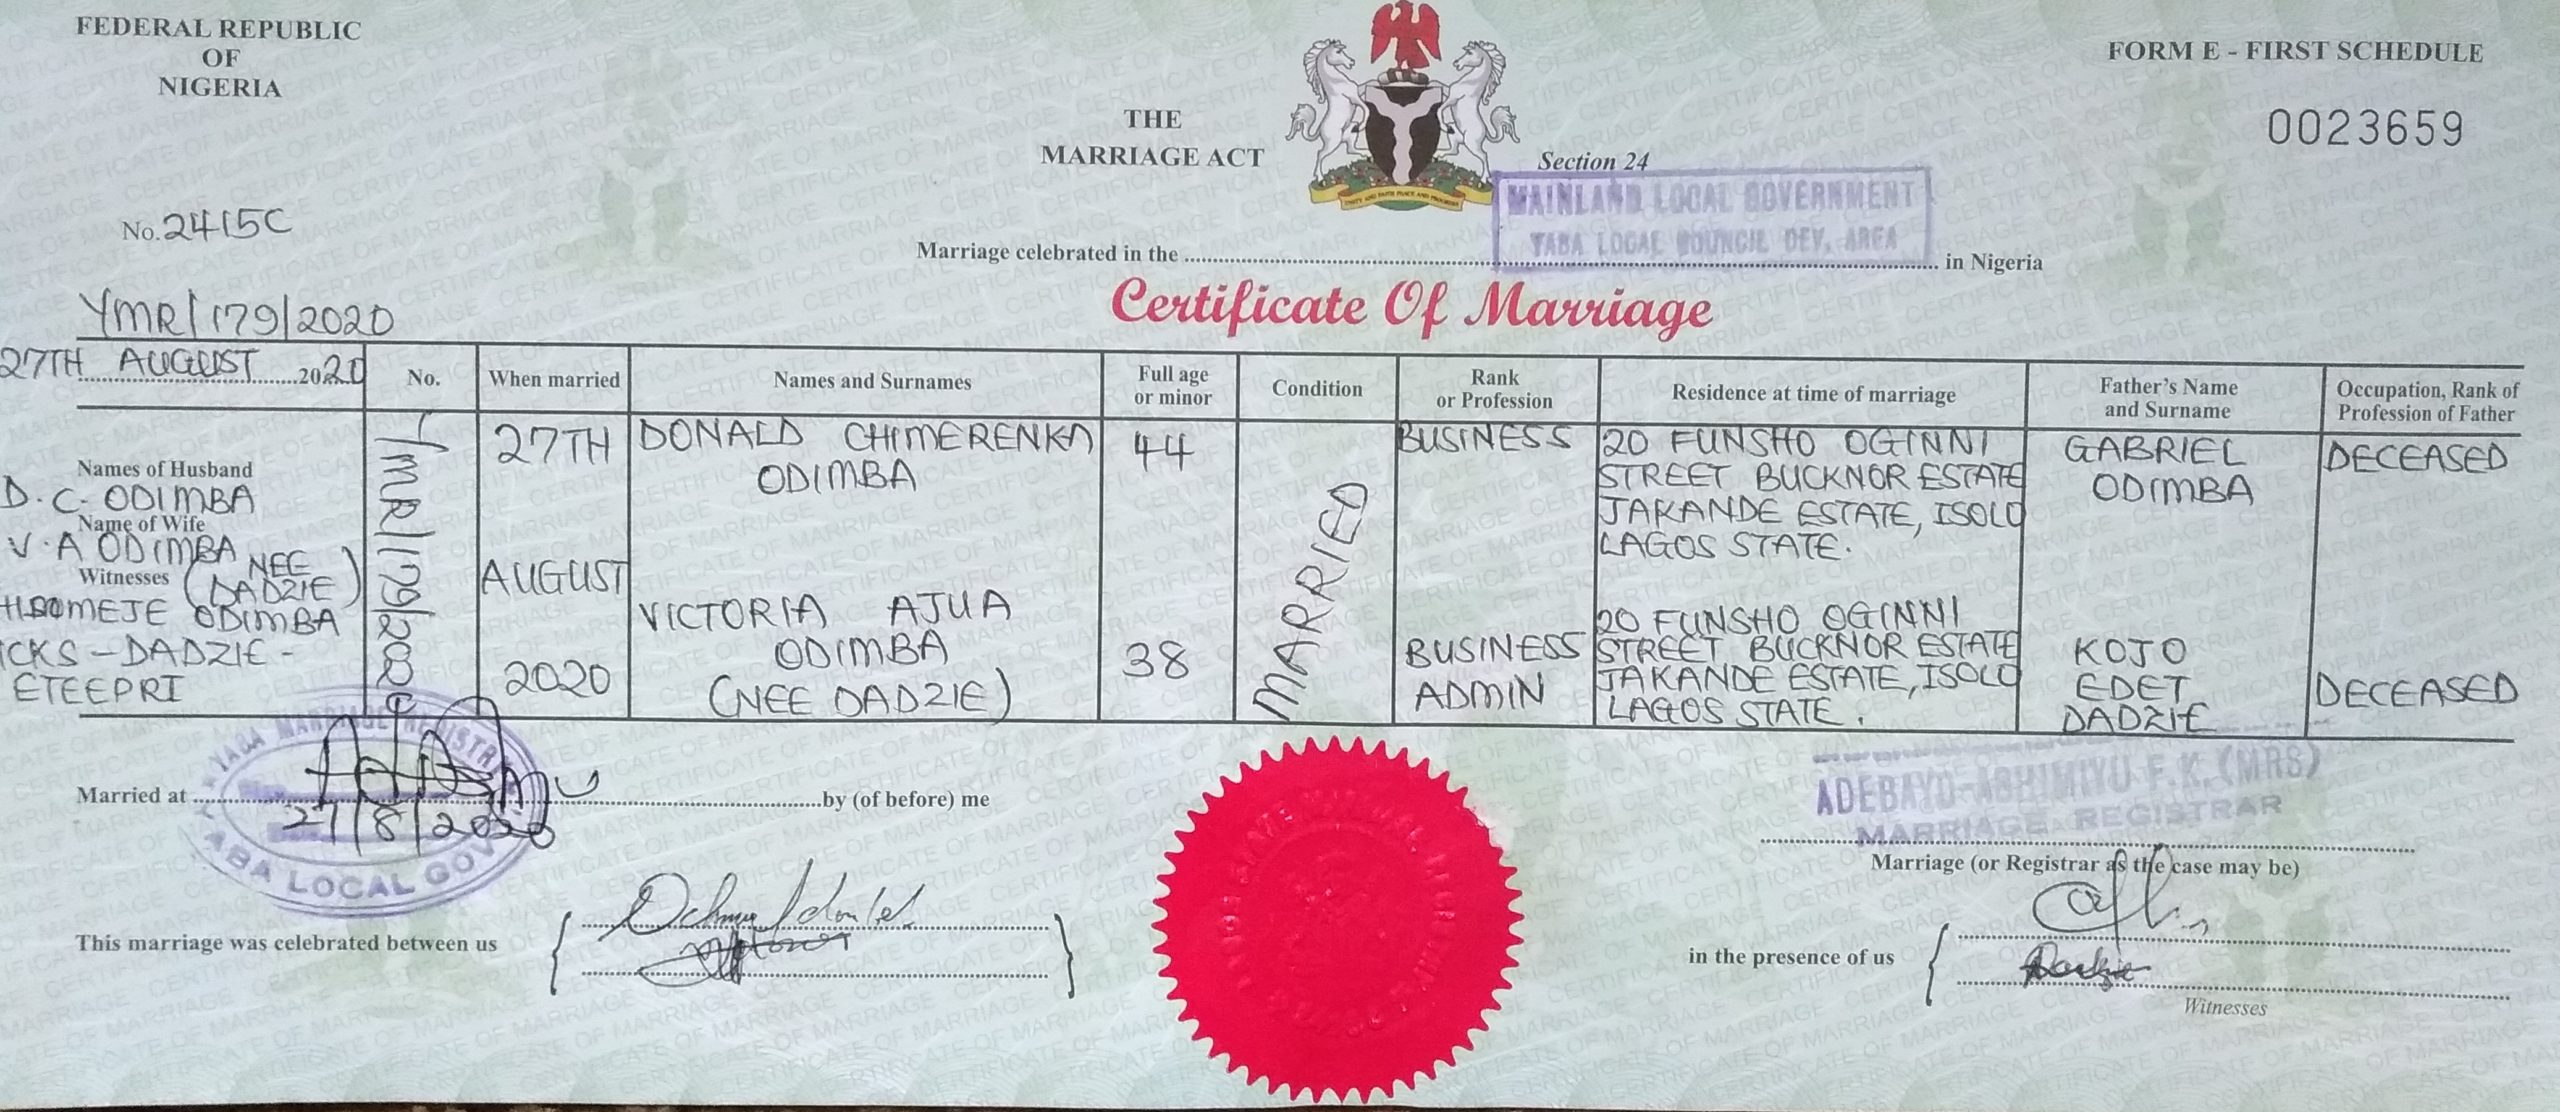 FEDERAL REPUBLIC
OF
NIGERIA
THE
MARRIAGE ACT
Section 24
FORM E - FIRST SCHEDULE
0023659
No. 2415C
MAINLAND LOCAL GOVERNMENT
YABA LOCAL COUNCIL DEV. AREA
Marriage celebrated in the in Nigeria
Certificate Of Marriage
YMR/179/2020
27TH AUGUST 2020
No.
When married
Names and Surnames
Full age
or minor
Condition
Rank
or Profession
Residence at time of marriage
Father's Name
and Surname
Occupation, Rank of
Profession of Father
Names of Husband
D. C. ODIMBA
Name of Wife
V. A ODIMBA
NEE
Witnesses (DADZIE)
ODIMBA
DADZIE -
ETEEPRI
YMR/179/2020
27TH
AUGUST
2020
DONALD CHIMERENKA
ODIMBA
44
MARRIED
BUSINESS
20 FUNSHO OGINNI
STREET BUCKNOR ESTATE
JAKANDE ESTATE, ISOLO
LAGOS STATE.
GABRIEL
ODIMBA
DECEASED
VICTORIA AJUA
ODIMBA
(NEE DADZIE)
38
BUSINESS
ADMIN
20 FUNSHO OGINNI
STREET BUCKNOR ESTATE
JAKANDE ESTATE, ISOLO
LAGOS STATE.
KOJO
EDET
DADZIE
DECEASED
YABA MARRIAGE REGISTRY
27/8/2020
YABA LOCAL GOV
Married at by (of before) me
F.K. (MRS)
MARRIAGE REGISTRAR
Marriage (or Registrar as the case may be)
This marriage was celebrated between us
in the presence of us
Witnesses